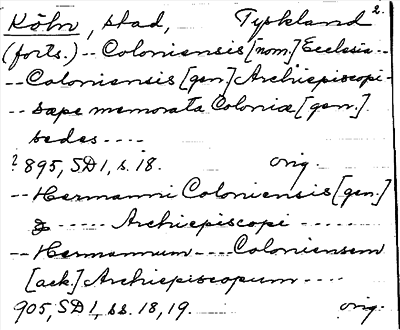 Köln, stad, Tyskland 2.
(forts.) -- Coloniensis [nom.] Ecclesia --
-- Coloniensis [gen.] Archiepiscopi -
-- sæpe memorata Coloniæ [gen.]
sedes ----
? 895, SD1, s. 18. orig.
-- Hermanni Coloniensis [gen.]
----- Archiepiscopi -----
-- Hermannum ---- Coloniensem
[ack.] Archiepiscopum ----
905, SD1, ss. 18, 19. orig.